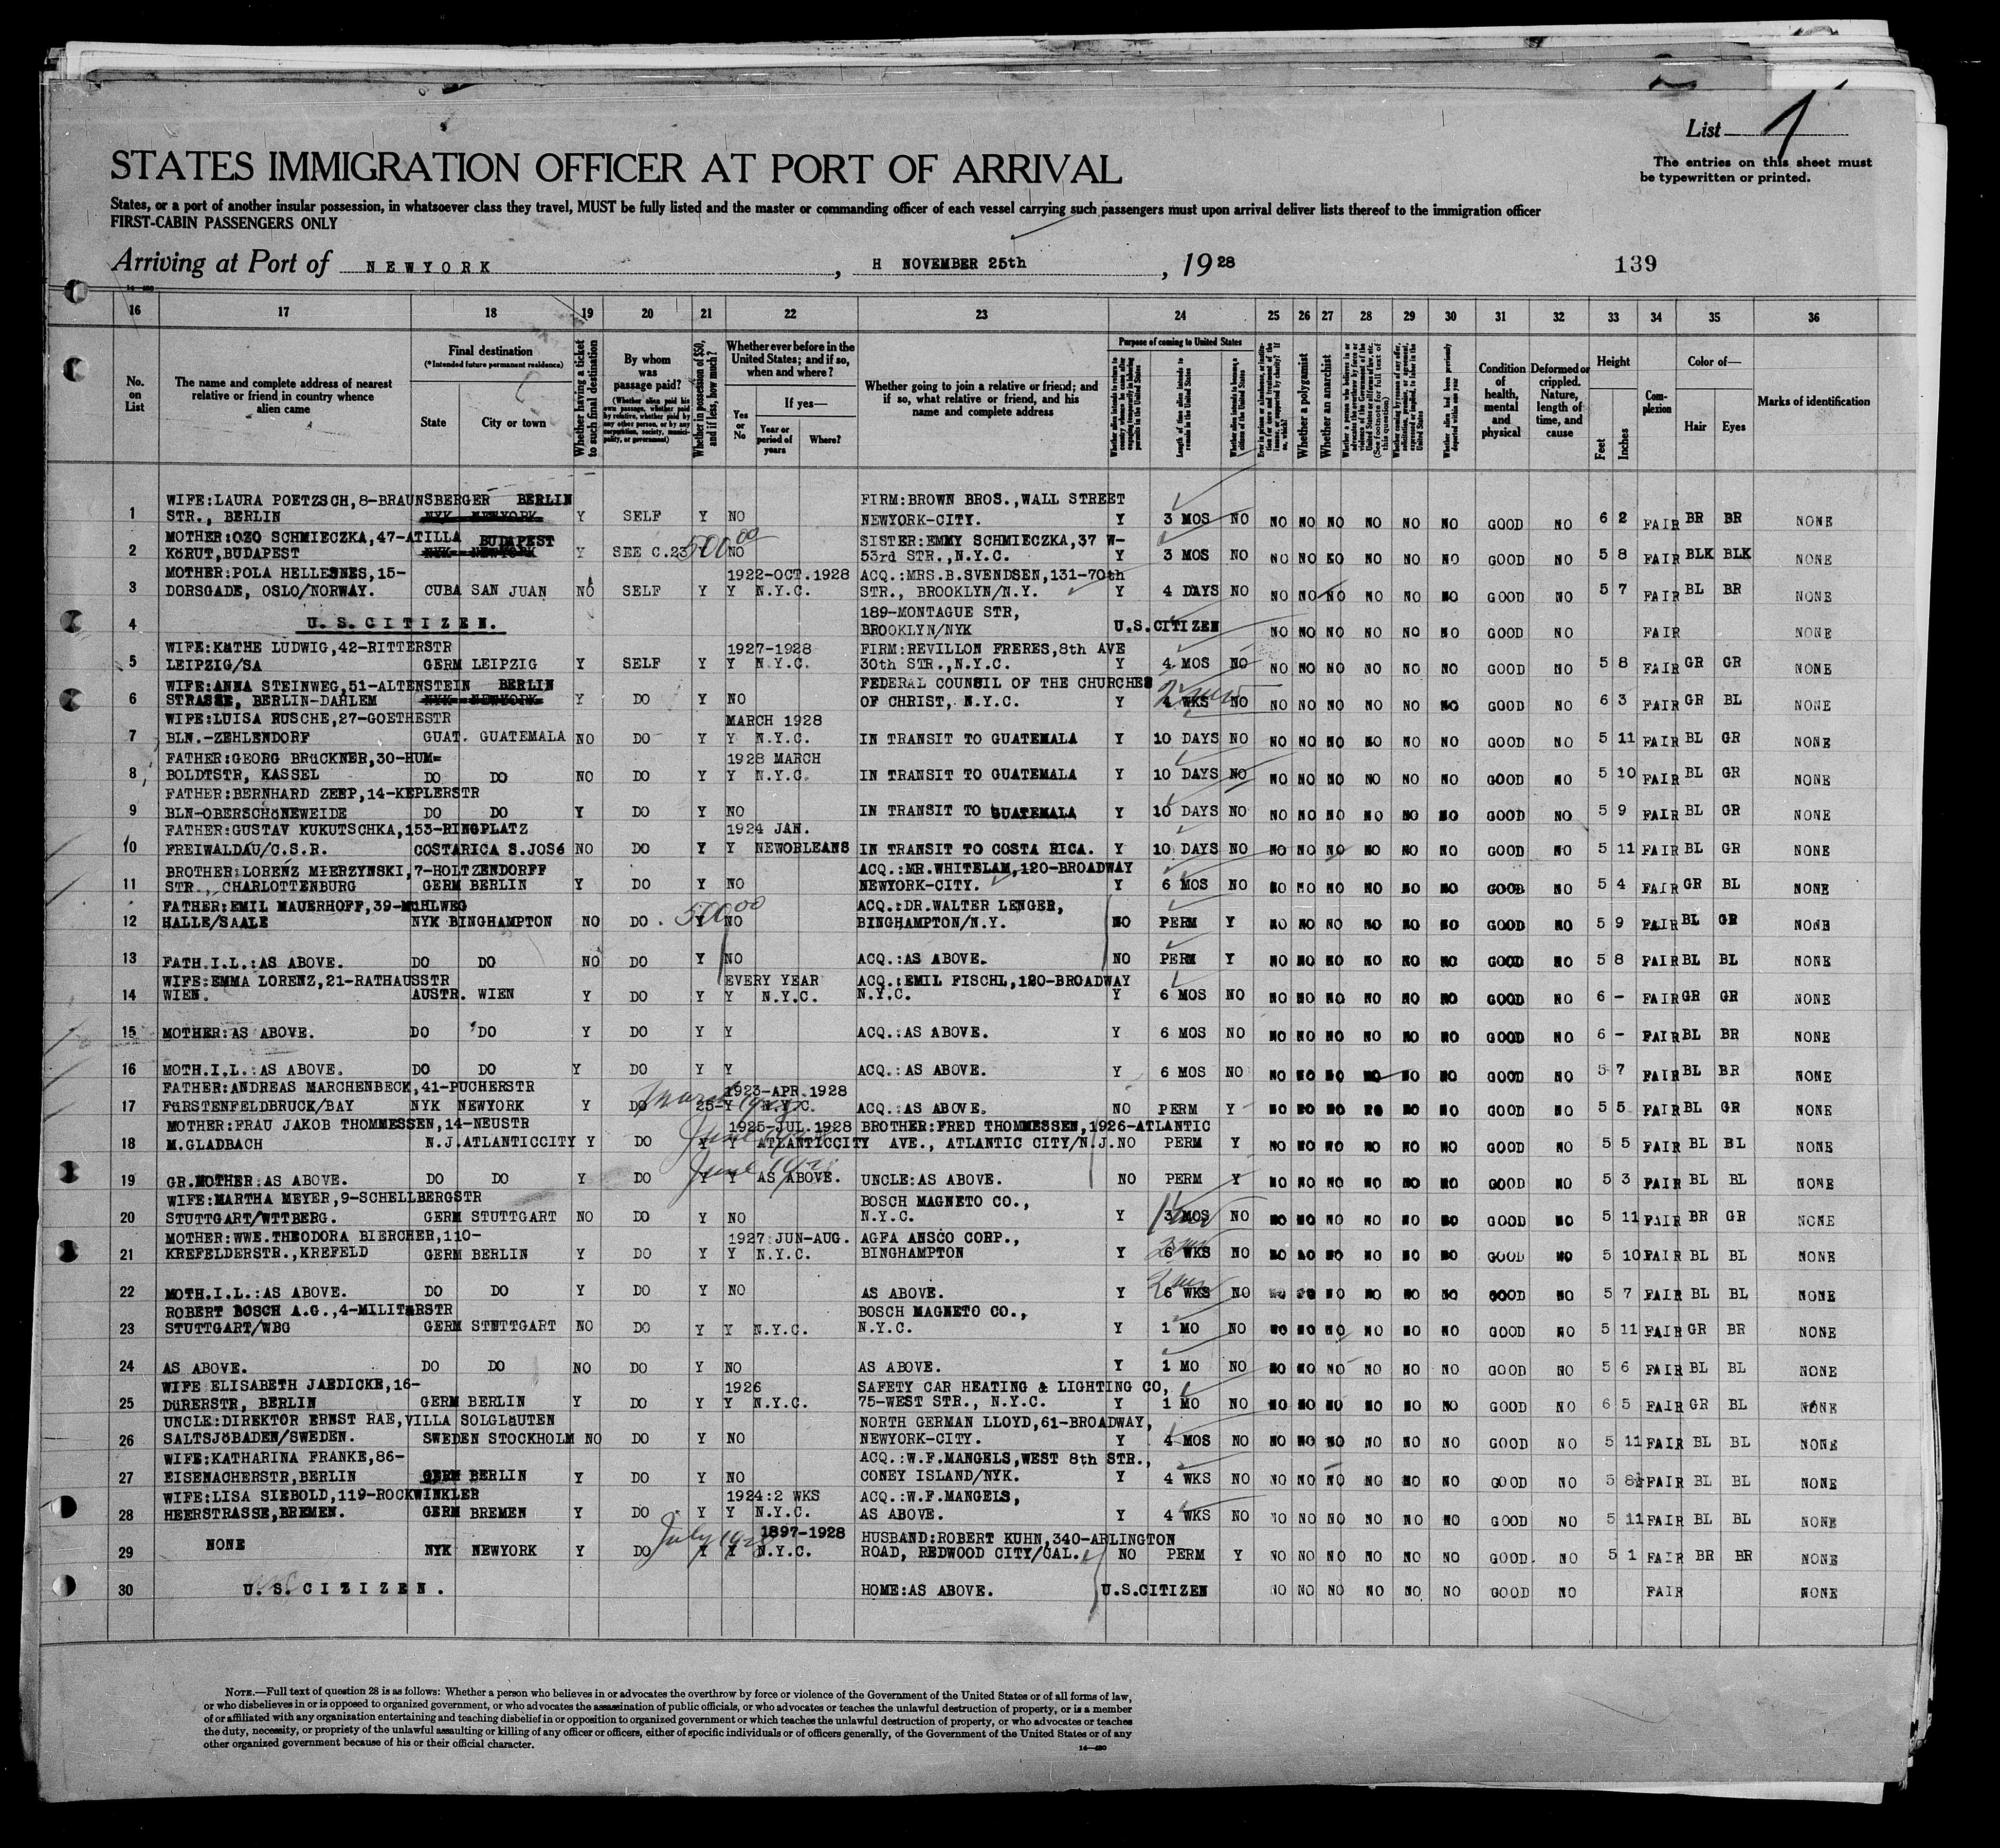 List 1
The entries on this sheet must
be typewritten or printed.
STATES IMMIGRATION OFFICER AT PORT OF ARRIVAL
States, or a port of another insular possession, in whatsoever class they travel, MUST be fully listed and the master or commanding officer of each vessel carrying such passengers must upon arrival deliver lists thereof to the immigration officer
FIRST-CABIN PASSENGERS ONLY
Arriving at Port of NEWYORK, H NOVEMBER 25th, 1928
139
16 17 18 19 20 21 22 23 24 25 26 27 28 29 30 31 32 33 34 35 36
No. on List
The name and complete address of nearest relative or friend in country whence alien came
Final destination
(*Intended future permanent residence)
State
City or town
Whether having a ticket to such final destination
By whom was passage paid?
Whether in possession of $50, and if less, how much?
Whether ever before in the United States; and if so, when and where?
Yes or No
If yes—
Year or period of years
Where?
Whether going to join a relative or friend; and if so, what relative or friend, and his name and complete address
Purpose of coming to United States
Whether a polygamist
Whether an anarchist
Condition of health, mental and physical
Deformed or crippled. Nature, length of time, and cause
Height
Feet
Inches
Complexion
Color of—
Hair
Eyes
Marks of identification
WIFE:LAURA POETZSCH,8-BRAUNSBERGER BERLIN FIRM:BROWN BROS.,WALL STREET
1 STR., BERLIN NYK NEWYORK Y SELF Y NO NEWYORK-CITY. Y 3 MOS NO NO NO NO NO NO NO GOOD NO 6 2 FAIR BR BR NONE
MOTHER:OZO SCHMIECZKA,47-ATILLA BUDAPEST 500.00 SISTER:EMMY SCHMIECZKA,37 W-
2 KöRUT,BUDAPEST NYK NEWYORK Y SEE C.23 NO 53rd STR.,N.Y.C. Y 3 MOS NO NO NO NO NO NO NO GOOD NO 5 8 FAIR BLK BLK NONE
MOTHER:POLA HELLESNES,15- 1922-OCT.1928 ACQ.:MRS.B.SVENDSEN,131-70th
3 DORSGADE, OSLO/NORWAY. CUBA SAN JUAN NO SELF Y Y N.Y.C. STR., BROOKLYN/N.Y. Y 4 DAYS NO NO NO NO NO NO NO GOOD NO 5 7 FAIR BL BR NONE
189-MONTAGUE STR,
4 U.S.CITIZEN. BROOKLYN/NYK U.S.CITIZEN NO NO NO NO NO NO GOOD NO FAIR NONE
WIFE:KäTHE LUDWIG,42-RITTERSTR 1927-1928 FIRM:REVILLON FRERES,8th AVE
5 LEIPZIG/SA GERM LEIPZIG Y SELF Y Y N.Y.C. 30th STR.,N.Y.C. Y 4 MOS NO NO NO NO NO NO NO GOOD NO 5 8 FAIR GR GR NONE
WIFE:ANNA STEINWEG,51-ALTENSTEIN BERLIN FEDERAL COUNSIL OF THE CHURCHES
6 STRASSE, BERLIN-DAHLEM NYK NEWYORK Y DO Y NO OF CHRIST, N.Y.C. Y 4 WKS NO NO NO NO NO NO NO GOOD NO 6 3 FAIR GR BL NONE
WIFE:LUISA RUSCHE,27-GOETHESTR MARCH 1928
7 BLN.-ZEHLENDORF GUAT. GUATEMALA NO DO Y Y N.Y.C. IN TRANSIT TO GUATEMALA Y 10 DAYS NO NO NO NO NO NO NO GOOD NO 5 11 FAIR BL GR NONE
FATHER:GEORG BRüCKNER,30-HUM= 1928 MARCH
8 BOLDTSTR, KASSEL DO DO NO DO Y Y N.Y.C. IN TRANSIT TO GUATEMALA Y 10 DAYS NO NO NO NO NO NO NO GOOD NO 5 10 FAIR BL GR NONE
FATHER:BERNHARD ZEEP,14-KEPLERSTR
9 BLN-OBERSCHöNEWEIDE DO DO Y DO Y NO IN TRANSIT TO GUATEMALA Y 10 DAYS NO NO NO NO NO NO NO GOOD NO 5 9 FAIR BL GR NONE
FATHER:GUSTAV KUKUTSCHKA,153-RINGPLATZ 1924 JAN.
10 FREIWALDAU/C.S.R. COSTARICA S.JOSé NO DO Y Y NEWORLEANS IN TRANSIT TO COSTA RICA. Y 10 DAYS NO NO NO NO NO NO NO GOOD NO 5 11 FAIR BL GR NONE
BROTHER:LORENZ MIERZYNSKI,7-HOLTZENDORFF ACQ.:MR.WHITELAM,120-BROADWAY
11 STR., CHARLOTTENBURG GERM BERLIN Y DO Y NO NEWYORK-CITY. Y 6 MOS NO NO NO NO NO NO NO GOOD NO 5 4 FAIR GR BL NONE
FATHER:EMIL MAUERHOFF,39-MüHLWEG 500.00 ACQ.:DR.WALTER LENGER,
12 HALLE/SAALE NYK BINGHAMPTON NO DO Y NO BINGHAMPTON/N.Y. NO PERM Y NO NO NO NO NO NO GOOD NO 5 9 FAIR BL GR NONE
13 FATH.I.L.:AS ABOVE. DO DO NO DO Y NO ACQ.:AS ABOVE. NO PERM Y NO NO NO NO NO NO GOOD NO 5 8 FAIR BL BL NONE
WIFE:EMMA LORENZ,21-RATHAUSSTR EVERY YEAR ACQ.:EMIL FISCHL,120-BROADWAY
14 WIEN. AUSTR. WIEN Y DO Y Y N.Y.C. N.Y.C. Y 6 MOS NO NO NO NO NO NO NO GOOD NO 6 - FAIR GR GR NONE
15 MOTHER:AS ABOVE. DO DO Y DO Y Y ACQ.:AS ABOVE. Y 6 MOS NO NO NO NO NO NO NO GOOD NO 6 - FAIR BL BR NONE
16 MOTH.I.L.:AS ABOVE. DO DO Y DO Y Y ACQ.:AS ABOVE. Y 6 MOS NO NO NO NO NO NO NO GOOD NO 5 7 FAIR BL BR NONE
FATHER:ANDREAS MARCHENBECK,41-PUCHERSTR 1923-APR.1928
17 FüRSTENFELDBRUCK/BAY NYK NEWYORK Y DO 25- Y N.Y.C. ACQ.:AS ABOVE. NO PERM Y NO NO NO NO NO NO GOOD NO 5 5 FAIR BL GR NONE
MOTHER:FRAU JAKOB THOMMESSEN,14-NEUSTR 1925-JUL.1928 BROTHER:FRED THOMMESSEN,1926-ATLANTIC
18 M.GLADBACH N.J.ATLANTICCITY Y DO Y Y ATLANTICCITY AVE., ATLANTIC CITY/N.J. NO PERM Y NO NO NO NO NO NO GOOD NO 5 5 FAIR BL BL NONE
19 GR.MOTHER:AS ABOVE. DO DO Y DO Y Y AS ABOVE. UNCLE:AS ABOVE. NO PERM Y NO NO NO NO NO NO GOOD NO 5 3 FAIR BL BL NONE
WIFE:MARTHA MEYER,9-SCHELLBERGSTR BOSCH MAGNETO CO.,
20 STUTTGART/WTTBERG. GERM STUTTGART NO DO Y NO N.Y.C. Y 3 MOS NO NO NO NO NO NO NO GOOD NO 5 11 FAIR BR GR NONE
MOTHER:WWE.THEODORA BIERCHER,110- 1927:JUN-AUG. AGFA ANSCO CORP.,
21 KREFELDERSTR.,KREFELD GERM BERLIN Y DO Y Y N.Y.C. BINGHAMPTON Y 6 WKS NO NO NO NO NO NO NO GOOD NO 5 10 FAIR BL BL NONE
22 MOTH.I.L.:AS ABOVE. DO DO Y DO Y NO AS ABOVE. Y 6 WKS NO NO NO NO NO NO NO GOOD NO 5 7 FAIR BL BL NONE
ROBERT BOSCH A.G.,4-MILITäRSTR BOSCH MAGNETO CO.,
23 STUTTGART/WBG GERM STUTTGART NO DO Y Y N.Y.C. N.Y.C. Y 1 MO NO NO NO NO NO NO NO GOOD NO 5 11 FAIR GR BR NONE
24 AS ABOVE. DO DO NO DO Y NO AS ABOVE. Y 1 MO NO NO NO NO NO NO NO GOOD NO 5 6 FAIR BL BL NONE
WIFE ELISABETH JAEDICKE,16- 1926 SAFETY CAR HEATING & LIGHTING CO,
25 DüRERSTR, BERLIN GERM BERLIN Y DO Y Y N.Y.C. 75-WEST STR., N.Y.C. Y 1 MO NO NO NO NO NO NO NO GOOD NO 6 5 FAIR GR BL NONE
UNCLE:DIREKTOR ERNST RAE,VILLA SOLGLäUTEN NORTH GERMAN LLOYD,61-BROADWAY,
26 SALTSJöBADEN/SWEDEN. SWEDEN STOCKHOLM NO DO Y NO NEWYORK-CITY. Y 4 MOS NO NO NO NO NO NO NO GOOD NO 5 11 FAIR BL BL NONE
WIFE:KATHARINA FRANKE,86- ACQ.:W.F.MANGELS,WEST 8th STR.,
27 EISENACHERSTR,BERLIN GERM BERLIN Y DO Y NO CONEY ISLAND/NYK. Y 4 WKS NO NO NO NO NO NO NO GOOD NO 5 8½ FAIR BL BL NONE
WIFE:LISA SIEBOLD,119-ROCKWINKLER 1924:2 WKS ACQ.:W.F.MANGELS,
28 HEERSTRASSE,BREMEN. GERM BREMEN Y DO Y Y N.Y.C. AS ABOVE. Y 4 WKS NO NO NO NO NO NO NO GOOD NO 5 11 FAIR BL BL NONE
NONE July 1928 1897-1928 HUSBAND:ROBERT KUHN,340-ARLINGTON
29 NYK NEWYORK Y DO Y Y N.Y.C. ROAD, REDWOOD CITY/CAL. NO PERM Y NO NO NO NO NO NO GOOD. NO 5 1 FAIR BR BR NONE
30 U.S.CIZIZEN. HOME:AS ABOVE. U.S.CITIZEN NO NO NO NO NO NO GOOD NO FAIR NONE
NOTE.—Full text of question 28 is as follows: Whether a person who believes in or advocates the overthrow by force or violence of the Government of the United States or of all forms of law,
or who disbelieves in or is opposed to organized government, or who advocates the assassination of public officials, or who advocates or teaches the unlawful destruction of property, or is a member
of or affiliated with any organization entertaining and teaching disbelief in or opposition to organized government or which teaches the unlawful destruction of property, or who advocates or teaches
the duty, necessity, or propriety of the unlawful assaulting or killing of any officer or officers, either of specific individuals or of officers generally, of the Government of the United States or of any
other organized government because of his or their official character.
14—430